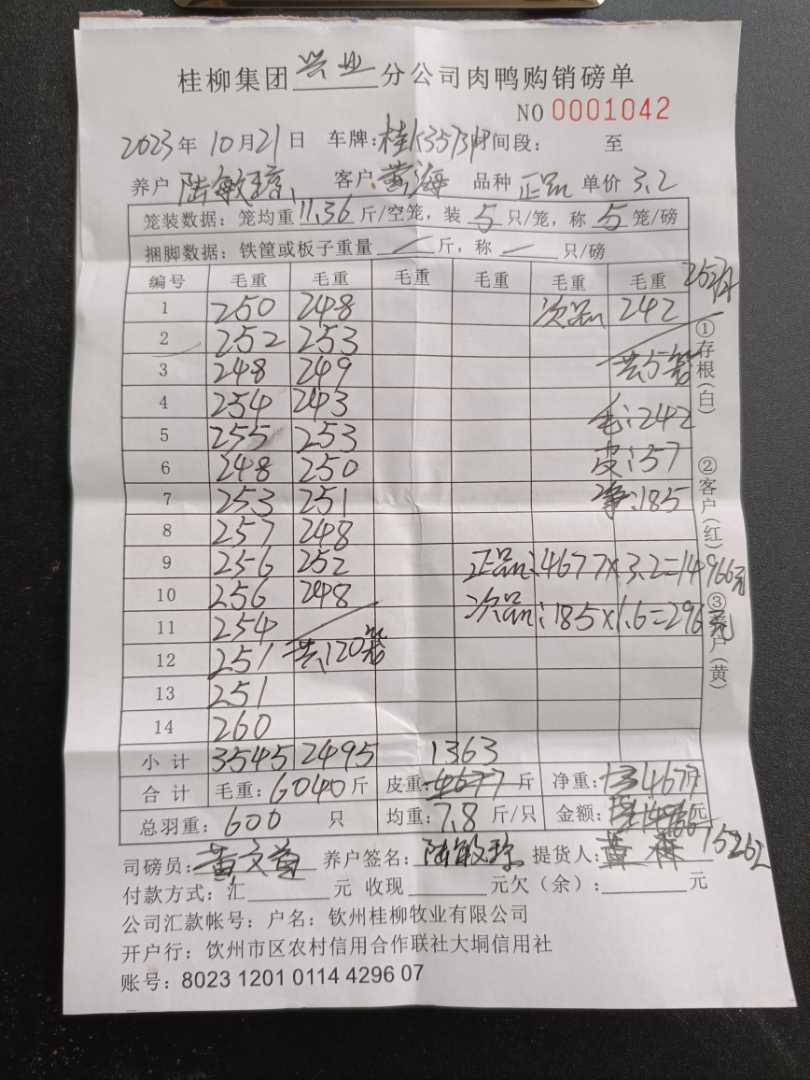 桂柳集团 兴业 分公司肉鸭购销磅单
NO 0001042
2023年 10月21日 车牌:桂K35731 时间段: 至
养户 陆敏琼 客户 黄海 品种 正品 单价 3.2
笼装数据:笼均重11.36斤/空笼,装 5 只/笼,称 5 笼/磅
捆脚数据:铁筐或板子重量 — 斤,称 — 只/磅
编号 毛重 毛重 毛重 毛重 毛重 毛重
1 250 248 次品 242
2 252 253
3 248 249 共5笼
4 254 243 毛:242
5 255 253 皮:57
6 248 250 净:185
7 253 251
8 257 248
9 256 252 正品:4677×3.2=14966元
10 256 248 次品:185×1.6=296元
11 254
12 251 共120笼
13 251
14 260
小计 3545 2495 1363
合计 毛重:6040斤 皮重:4677斤 净重:4677
总羽重:600 只 均重:7.8 斤/只 金额: 元
15262
司磅员: 养户签名:陆敏琼 提货人:
付款方式:汇 元 收现 元欠(余): 元
公司汇款帐号:户名:钦州桂柳牧业有限公司
开户行:钦州市区农村信用合作联社大垌信用社
账号:8023 1201 0114 4296 07
①存根(白) ②客户(红) ③ 户(黄)